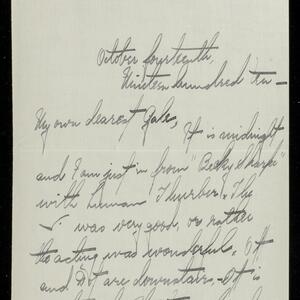 October fourteenth,
Nineteen hundred ten —
My own dearest Gale,
It is midnight
and I am just in from "Becky Sharp"
with human Thurber. The
was very good, or rather
the acting was wonderful.
and Dot are downstairs. It is